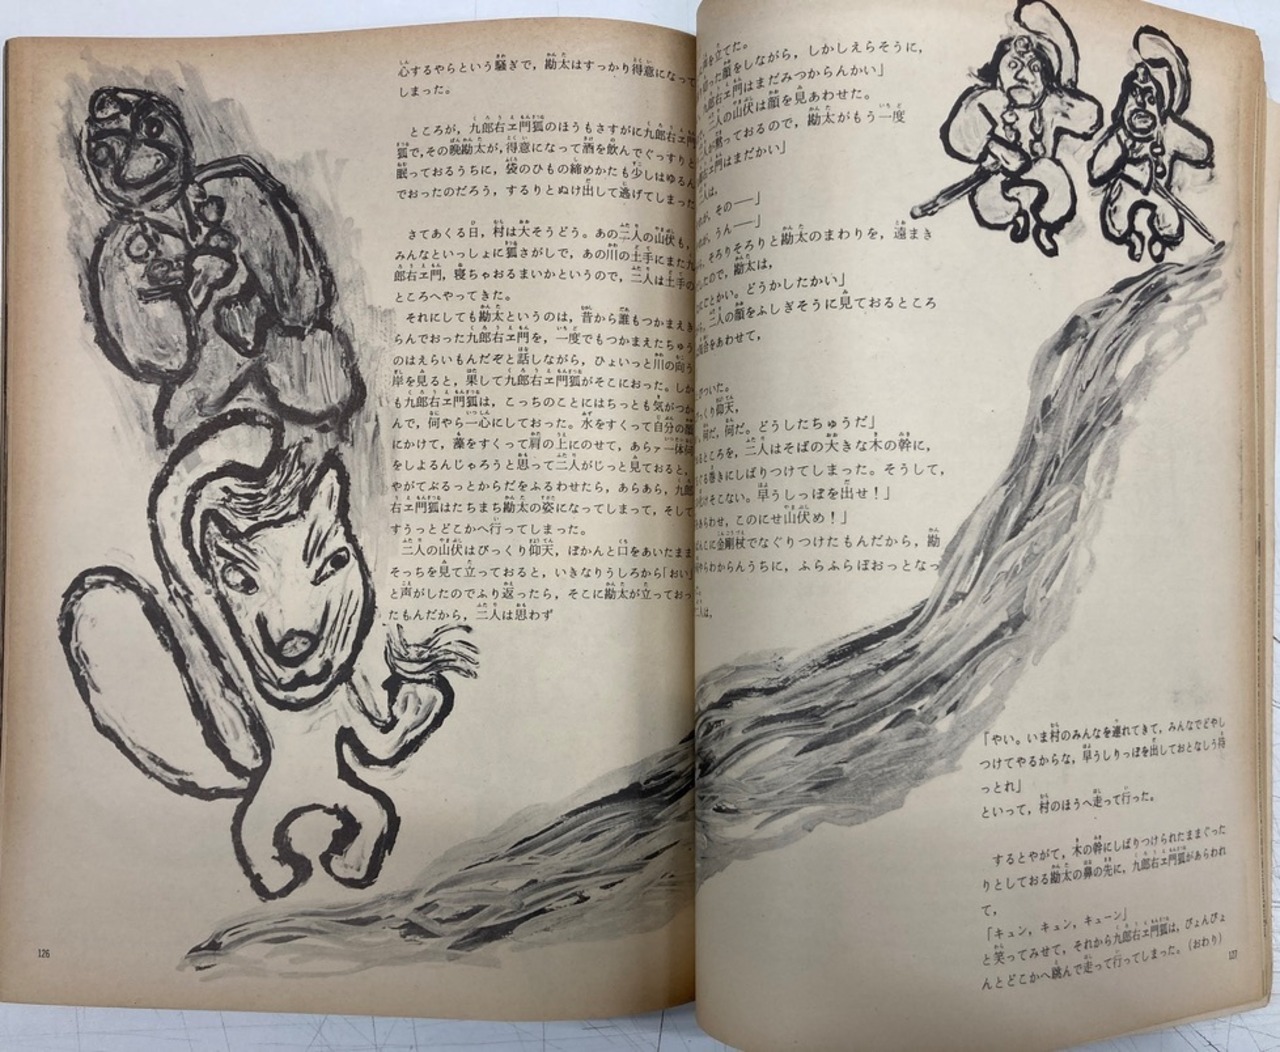 心するやらという騒ぎで，勘太はすっかり得意になって
しまった。
ところが，九郎右ェ門狐のほうもさすがに九郎右ェ門
狐で，その晩勘太が，得意になって酒を飲んでぐっすりと
眠っておるうちに，袋のひもの締めかたも少しはゆるん
でおったのだろう，するりとぬけ出して逃げてしまった
さてあくる日，村は大そうどう。あの二人の山伏も，
みんなといっしょに狐さがしで，あの川の土手にまた九
郎右ェ門，寝ちゃおるまいかというので，二人は土手の
ところへやってきた。
それにしても勘太というのは，昔から誰もつかまえき
らんでおった九郎右ェ門を，一度でもつかまえたちゅう
のはえらいもんだぞと話しながら，ひょいっと川の向う
岸を見ると，果して九郎右ェ門狐がそこにおった。しか
も九郎右ェ門狐は，こっちのことにはちっとも気がつか
んで，何やら一心にしておった。水をすくって自分の顔
にかけて，藻をすくって肩の上にのせて，あらァ一体何
をしよるんじゃろうと思って二人がじっと見ておると，
やがてぶるっとからだをふるわせたら，あらあら，九郎
右ェ門狐はたちまち勘太の姿になってしまって，そして
すうっとどこかへ行ってしまった。
二人の山伏はびっくり仰天，ぽかんと口をあいたまま
そっちを見て立っておると，いきなりうしろから「おい」
と声がしたのでふり返ったら，そこに勘太が立っておっ
たもんだから，二人は思わず
126
を立てた。
った顔をしながら，しかしえらそうに，
九郎右ェ門はまだみつからんかい」
二人の山伏は顔を見あわせた。
が黙っておるので，勘太がもう一度
右ェ門はまだかい」
二人は，
が，その――」
が，うん――」
，そろりそろりと勘太のまわりを，遠まき
したので，勘太は，
ことかい。どうかしたかい」
，二人の顔をふしぎそうに見ておるところ
合をあわせて，
がついた。
っくり仰天，
何だ，何だ。どうしたちゅうだ」
るところを，二人はそばの大きな木の幹に，
る巻きにしばりつけてしまった。そうして，
化けそこない。早うしっぽを出せ！」
あらわせ，このにせ山伏め！」
んこに金剛杖でなぐりつけたもんだから，勘
やらわからんうちに，ふらふらぼおっとなっ
二人は，
「やい。いま村のみんなを連れてきて，みんなでどやし
つけてやるからな，早うしりっぽを出しておとなしう待
っとれ」
といって，村のほうへ走って行った。
するとやがて，木の幹にしばりつけられたままぐった
りとしておる勘太の鼻の先に，九郎右ェ門狐があらわれ
て，
「キュン，キュン，キューン」
と笑ってみせて，それから九郎右ェ門狐は，ぴょんぴょ
んとどこかへ跳んで走って行ってしまった。（おわり）
127